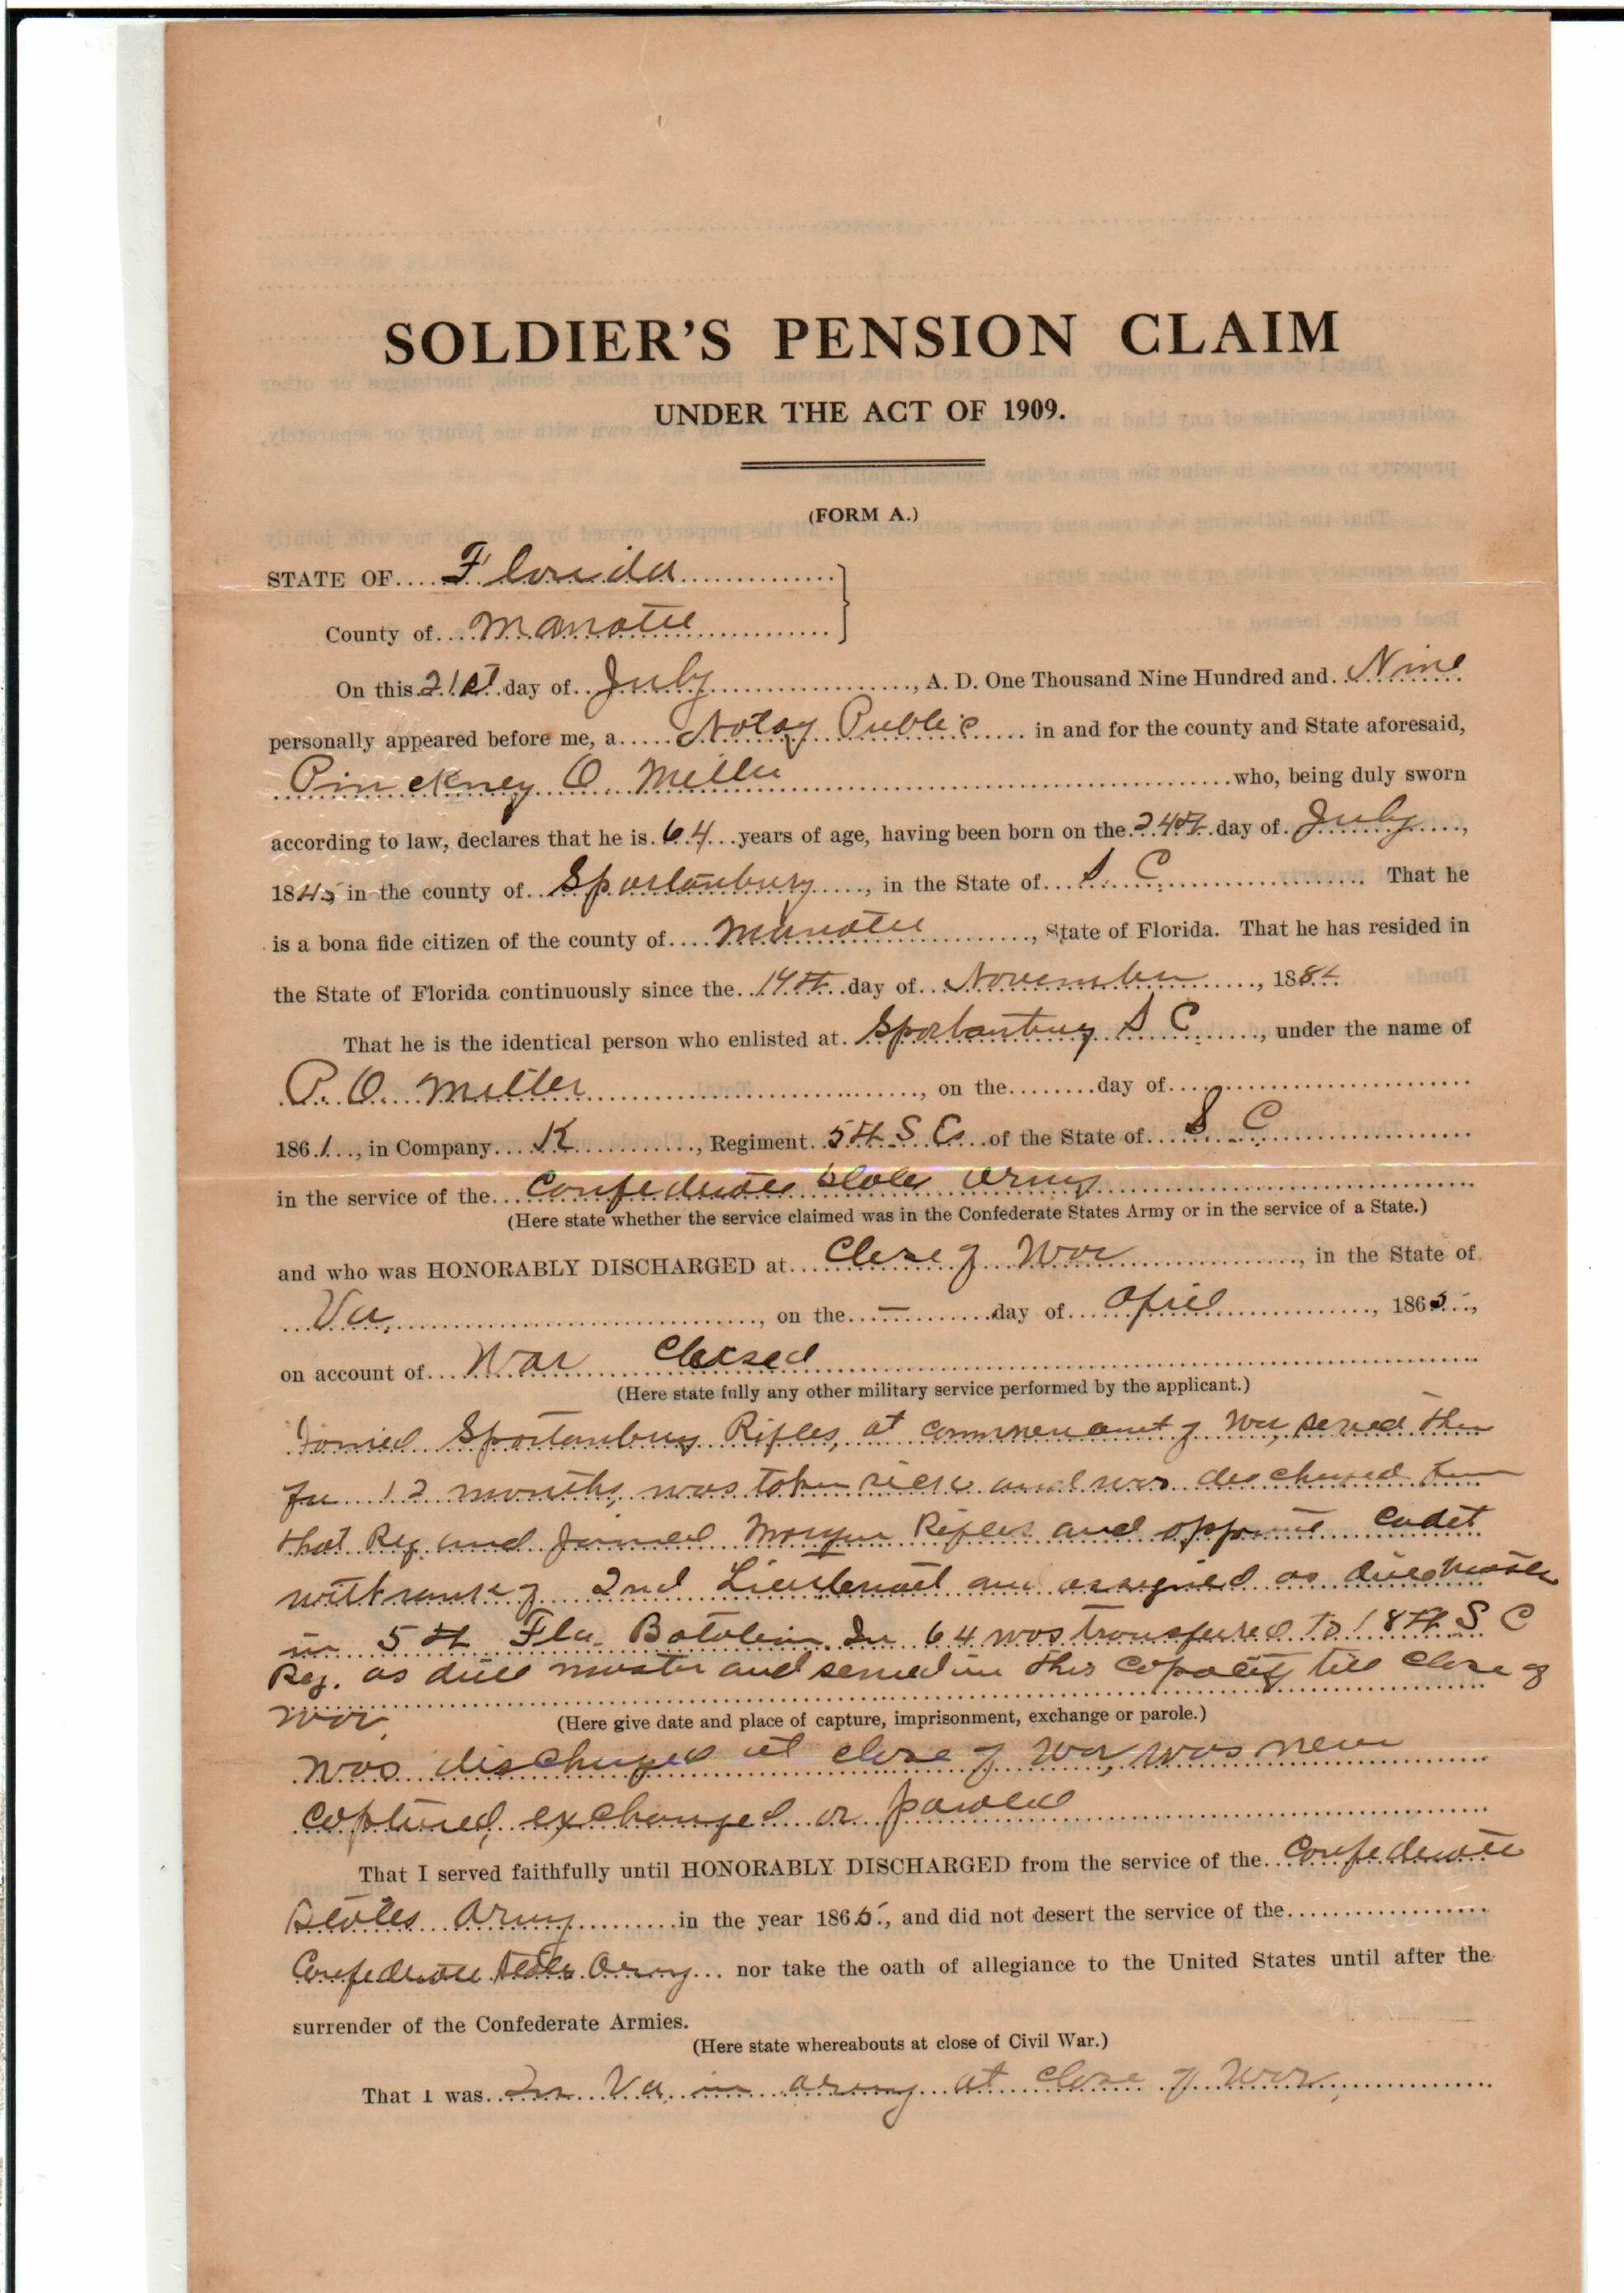 SOLDIER'S PENSION CLAIM
UNDER THE ACT OF 1909.
(FORM A.)
STATE OF Florida
County of Manatee
On this 21st day of July, A. D. One Thousand Nine Hundred and Nine
personally appeared before me, a Notay Public in and for the county and State aforesaid,
Pinckney O. Miller who, being duly sworn
according to law, declares that he is 64 years of age, having been born on the 24th day of July,
1845 in the county of Spartanburg, in the State of S. C. That he
is a bona fide citizen of the county of Manatee, State of Florida. That he has resided in
the State of Florida continuously since the day of November, 188
That he is the identical person who enlisted at Spartanburg S C, under the name of
P. O. Miller, on the day of
1861, in Company K, Regiment 5th S C of the State of S C
in the service of the Confederate States Army
(Here state whether the service claimed was in the Confederate States Army or in the service of a State.)
and who was HONORABLY DISCHARGED at Close of War, in the State of
Va., on the — day of April, 1865,
on account of War Closed
(Here state fully any other military service performed by the applicant.)
Joined Spartanburg Rifles, at commencment of War, served then
for 12 months, was taken sick and was discharged from
that Reg. and joined Morgan Rifles and Cadet
with rank of 2nd Lieutenant and assigned as drillmaster
in 5th Fla. Batalion. In 64 was transferred to 18th S C
Reg. as drill master and served in this capacity till close of
War
(Here give date and place of capture, imprisonment, exchange or parole.)
Was discharged at close of War, was never
captured, exchanged or paroled
That I served faithfully until HONORABLY DISCHARGED from the service of the Confederate
States Army in the year 1865, and did not desert the service of the
Confederate States Army nor take the oath of allegiance to the United States until after the
surrender of the Confederate Armies.
(Here state whereabouts at close of Civil War.)
That I was In Va, in army at close of War